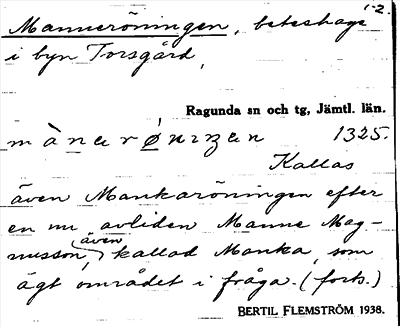 1-2.
Manneröningen, beteshage
i byn Torsgård,
Ragunda sn och tg, Jämtl. län.
mànarø̀niŋen 1325.
Kallas
även Mankaröningen efter
en nu avliden Manne Mag-
nusson, även kallad Manka, som
ägt området i fråga. (forts.)
BERTIL FLEMSTRÖM 1938.